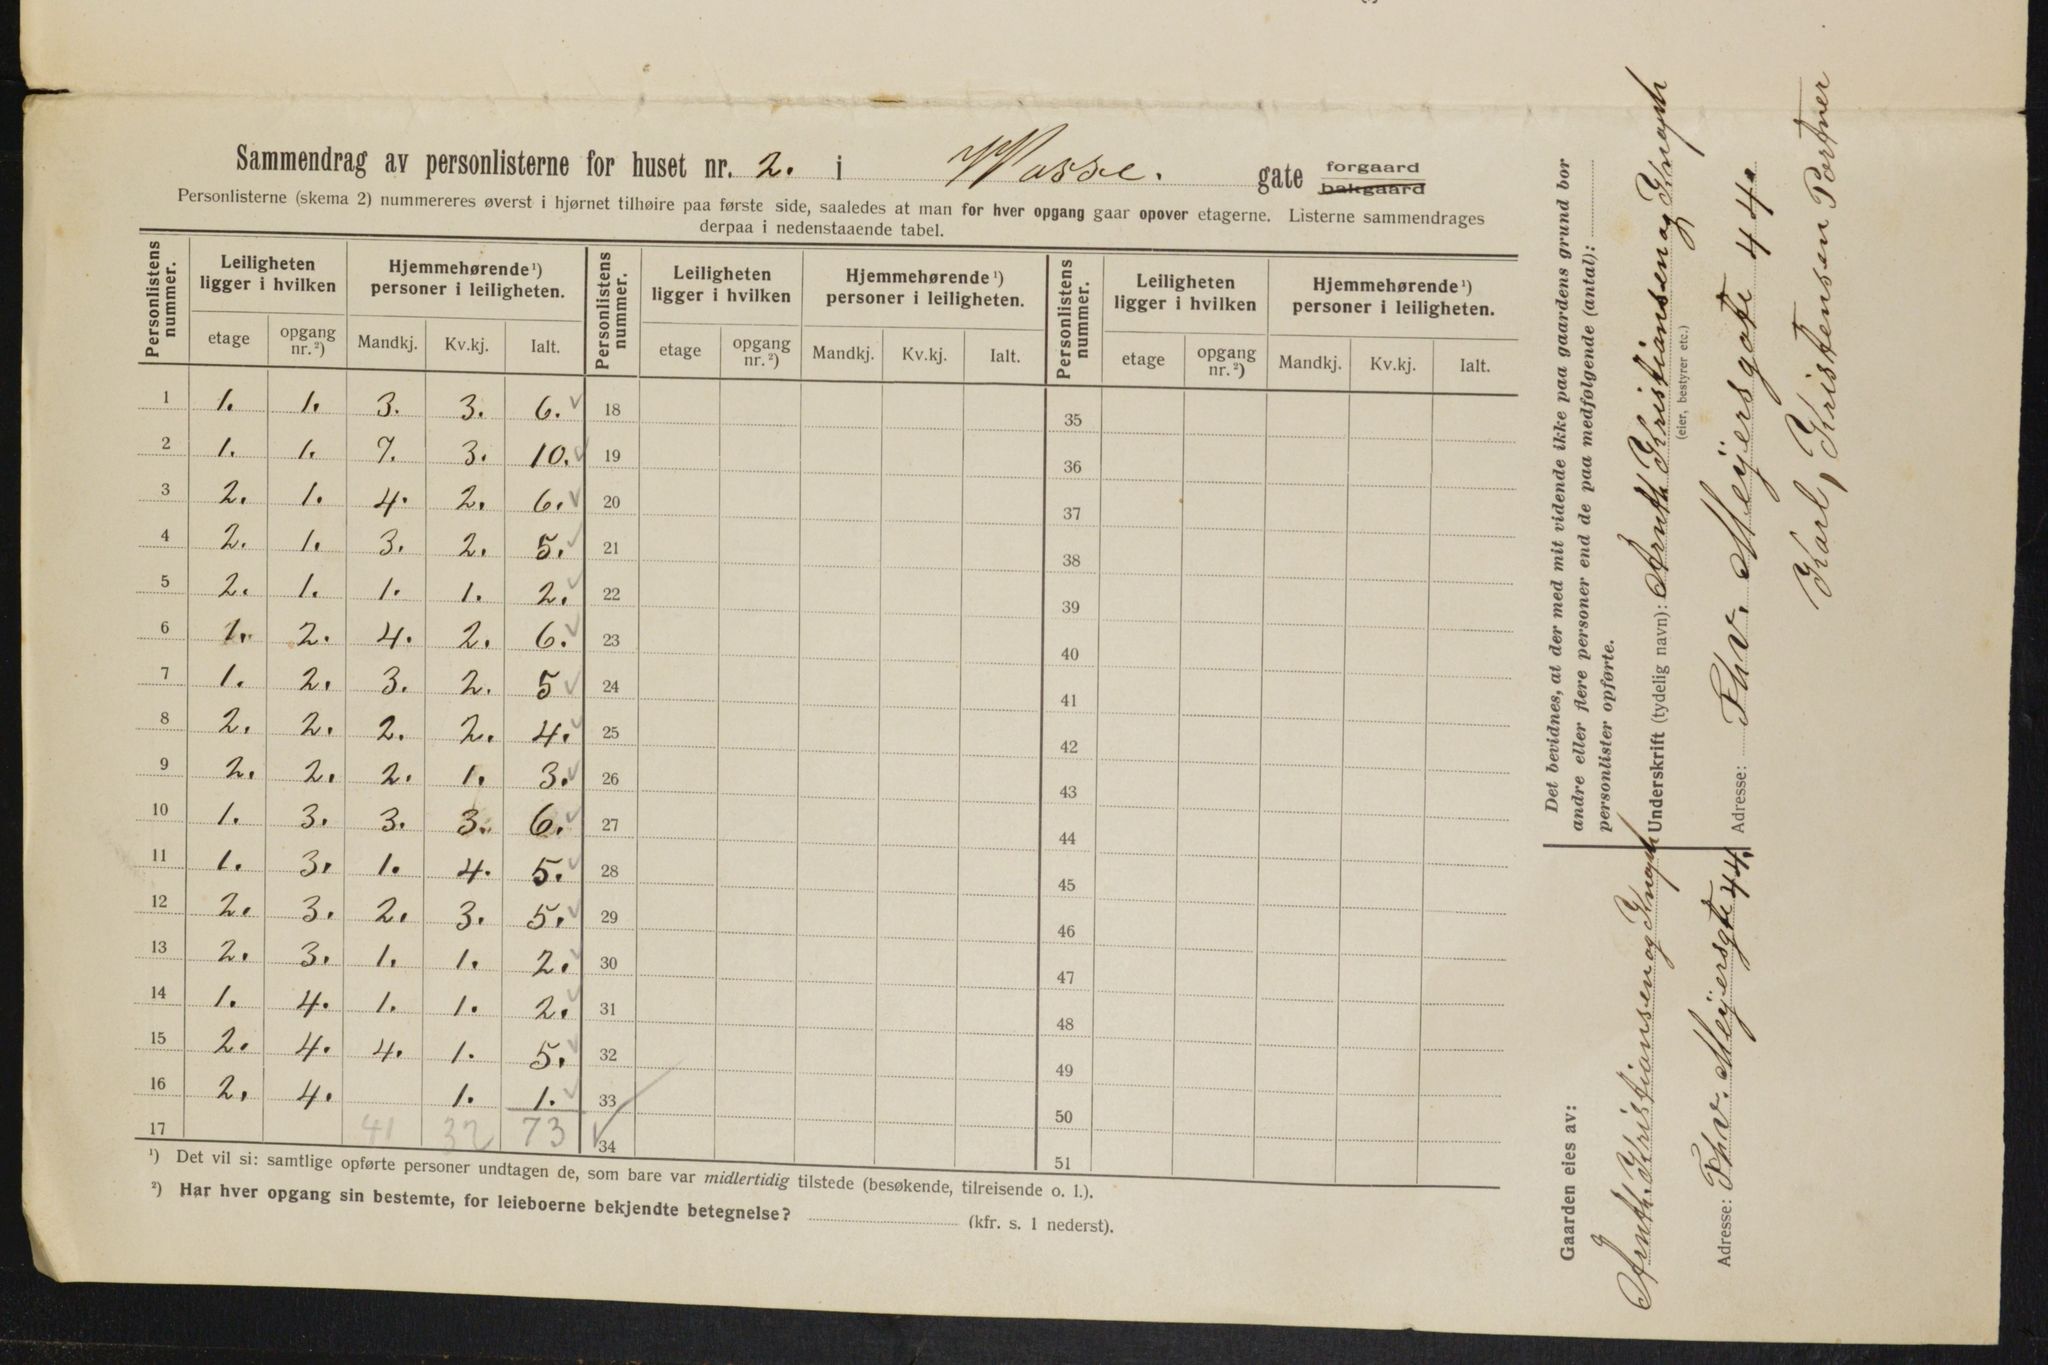 Sammendrag av personlisterne for huset nr. 2. i Wosse. gate forgaard bakgaard
Personlisterne (skema 2) nummereres øverst i hjørnet tilhøire paa første side, saaledes at man for hver opgang gaar opover etagerne. Listerne sammendrages
derpaa i nedenstaaende tabel.
Personlistens nummer. Leiligheten ligger i hvilken Hjemmehørende ¹) personer i leiligheten. Personlistens nummer. Leiligheten ligger i hvilken Hjemmehørende ¹) personer i leiligheten. Personlistens nummer. Leiligheten ligger i hvilken Hjemmehørende ¹) personer i leiligheten.
etage opgang nr. ²) Mandkj. Kv.kj. Ialt. etage opgang nr. ²) Mandkj. Kv.kj. Ialt. etage opgang nr. ²) Mandkj. Kv.kj. Ialt.
1 1. 1. 3. 3. 6. ✓ 18 35
2 1. 1. 7. 3. 10. ✓ 19 36
3 2. 1. 4. 2. 6. ✓ 20 37
4 2. 1. 3. 2. 5. ✓ 21 38
5 2. 1. 1. 1. 2. ✓ 22 39
6 1. 2. 4. 2. 6. ✓ 23 40
7 1. 2. 3. 2. 5 ✓ 24 41
8 2. 2. 2. 2. 4. ✓ 25 42
9 2. 2. 2. 1. 3. ✓ 26 43
10 1. 3. 3. 3. 6. ✓ 27 44
11 1. 3. 1. 4. 5. ✓ 28 45
12 2. 3. 2. 3. 5. ✓ 29 46
13 2. 3. 1. 1. 2. ✓ 30 47
14 1. 4. 1. 1. 2. ✓ 31 48
15 2. 4. 4. 1. 5. ✓ 32 49
16 2. 4. 1. 1. ✓ 33 50
17 41 32 73 ✓ 34 51
¹) Det vil si: samtlige opførte personer undtagen de, som bare var midlertidig tilstede (besøkende, tilreisende o. l.).
²) Har hver opgang sin bestemte, for leieboerne bekjendte betegnelse? (kfr. s. 1 nederst).
Det bevidnes, at der med mit vidende ikke paa gaardens grund bor
andre eller flere personer end de paa medfølgende (antal):
personlister opførte.
Underskrift (tydelig navn): Arnth. Kristiansen og Knoph
(eier, bestyrer etc.)
Adresse: Thv. Meijersgate 44.
Karl, Kristensen Portner
Gaarden eies av:
Arnth. Kristiansen og Knoph
Adresse: Thv. Meijersgt 44.